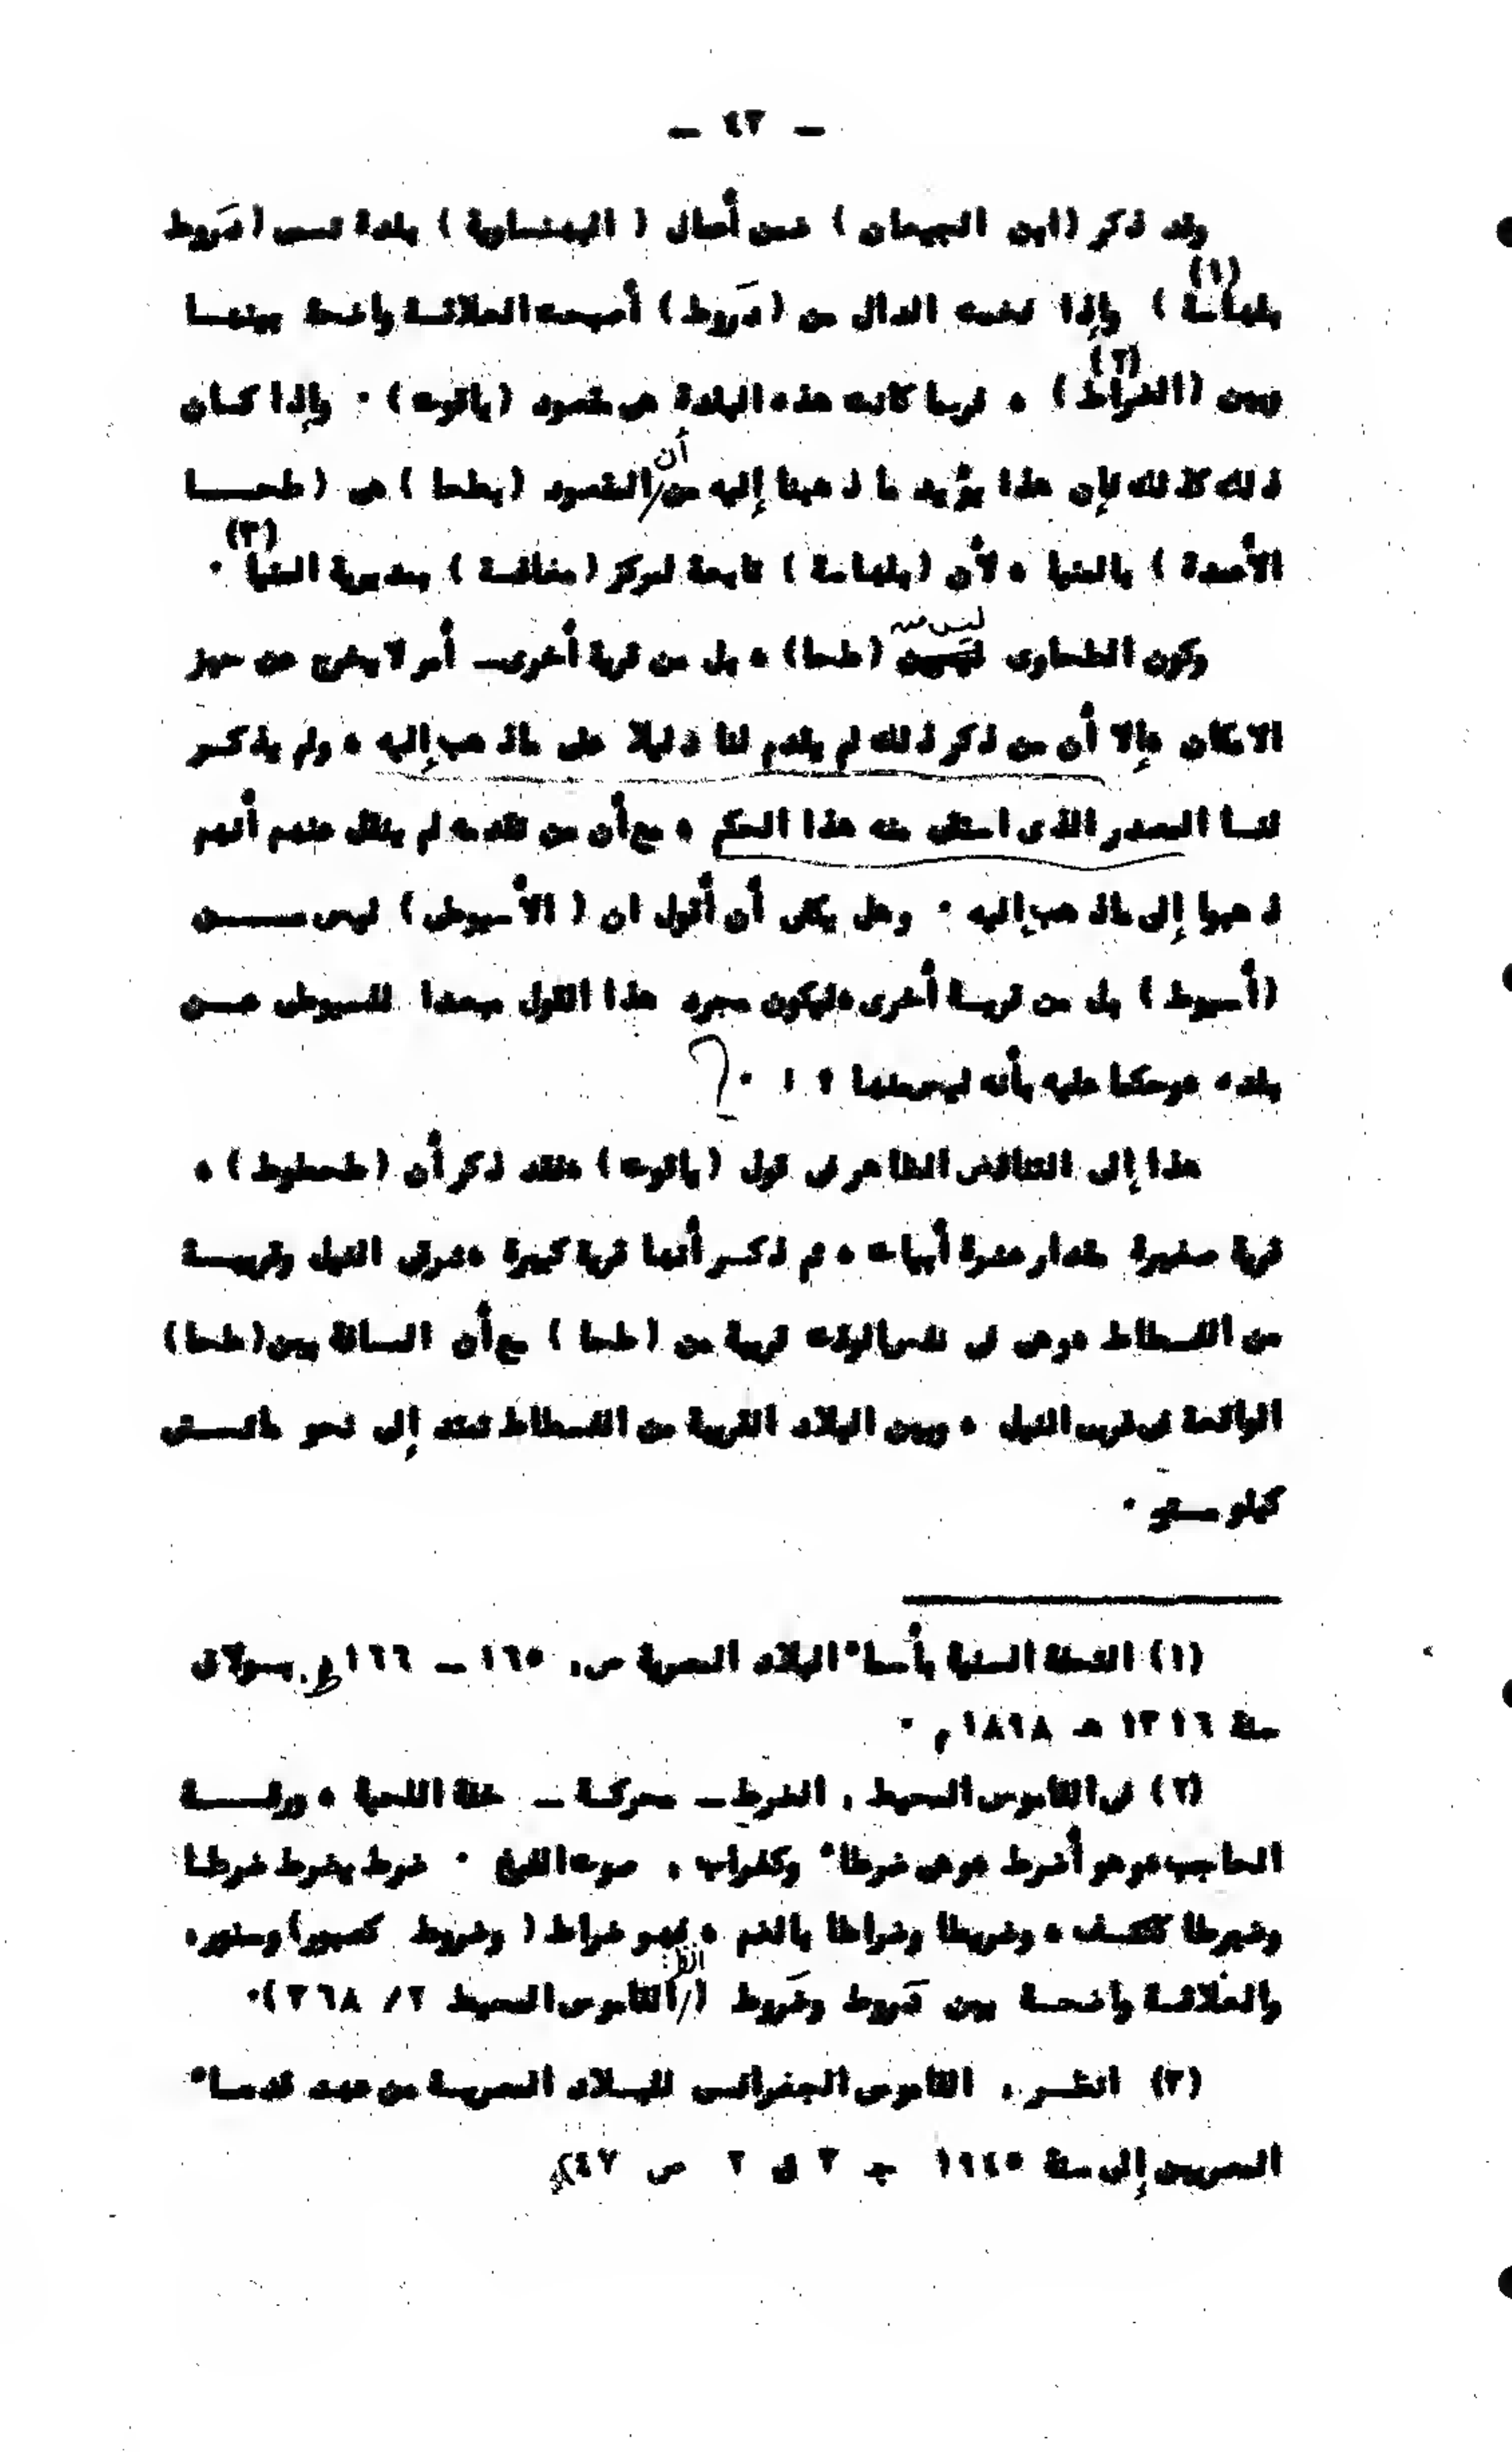 — ٤٢ —
وقد ذكر (ابن الجيعان) ضمن أعمال (البهنساوية) بلدة تسمى (دَروط
بلهاسة)(١) وإذا فخمت الدال من (دَروط) أصبحت العلاقة واضحة بينها
وبين (الضراط)(٢) ، فربما كانت هذه البلدة هى مقصود (ياقوت) . وإذا كان
ذلك كذلك فإن هذا يؤيد ما ذهبنا إليه من أن المقصود (بطحا) هى (طحا
الأعمدة) بالمنيا ، لأن (بلهاسة) تابعة لمركز (مغاغة) بمديرية المنيا(٣) .
وكون الطحاوى ليس من (طحا) ، بل من قرية أخرى – أمر لا يخرج عن حيز
الامكان وإلا أن من ذكر ذلك لم يقدم لنا دليلا على ماذهب إليه ، ولم يذكر
لنا المصدر الذى استقى منه هذا الحكم ، مع أن من تقدمه لم ينقل عنهم أنهم
ذهبوا إلى ماذهب إليه . وهل يكفى أن أقول ان (الأسيوطى) ليس من
(أسيوط) بل من قرية أخرى ، فيكون مجرد هذا القول مبعدا للسيوطى عن
بلده ، وحكما عليه بأنه ليس منها ؟ ! . ?
هذا إلى التناقض الظاهر فى قول (ياقوت) ، فقد ذكر أن (طحطوط) ،
قرية صغيرة مقدار عشرة أبيات ، ثم ذكر أنها قرية كبيرة ، شرقى النيل وقريبة
من الفسطاط ، وهى فى نفس الوقت قريبة من (طحا) مع أن المسافة بين (طحا)
الواقعة فى غربى النيل ، وبين البلاد القريبة من الفسطاط تمتد إلى نحو مائتى
كيلو متر .
(١) التحفة السنية بأسماء البلاد المصرية ص: ١٦٥ – ١٦٦ ط. بولاق
سنة ١٣١٦ هـ ١٨٩٨ م .
(٢) فى القاموس المحيط : الضرط – محركة – خفة اللحية ، ورقة
الحاجب ، وهو أضرط ، وهى ضرطاء وكغراب : صوت الفيخ . ضرط يضرط ضرطا
وضرطا ككتف ، وضريطا وضراطا بالضم ، فهو ضراط (وضروط كصبور) وسنور ،
والعلاقة واضحة بين دَروط وضَروط (انظر: القاموس المحيط ٢/ ٣٦٨) .
(٣) انظر : القاموس الجغرافى للبلاد المصرية من عهد قدماء
المصريين إلى سنة ١٩٤٥ جـ ٣ ق ٢ ص ٢٤٧